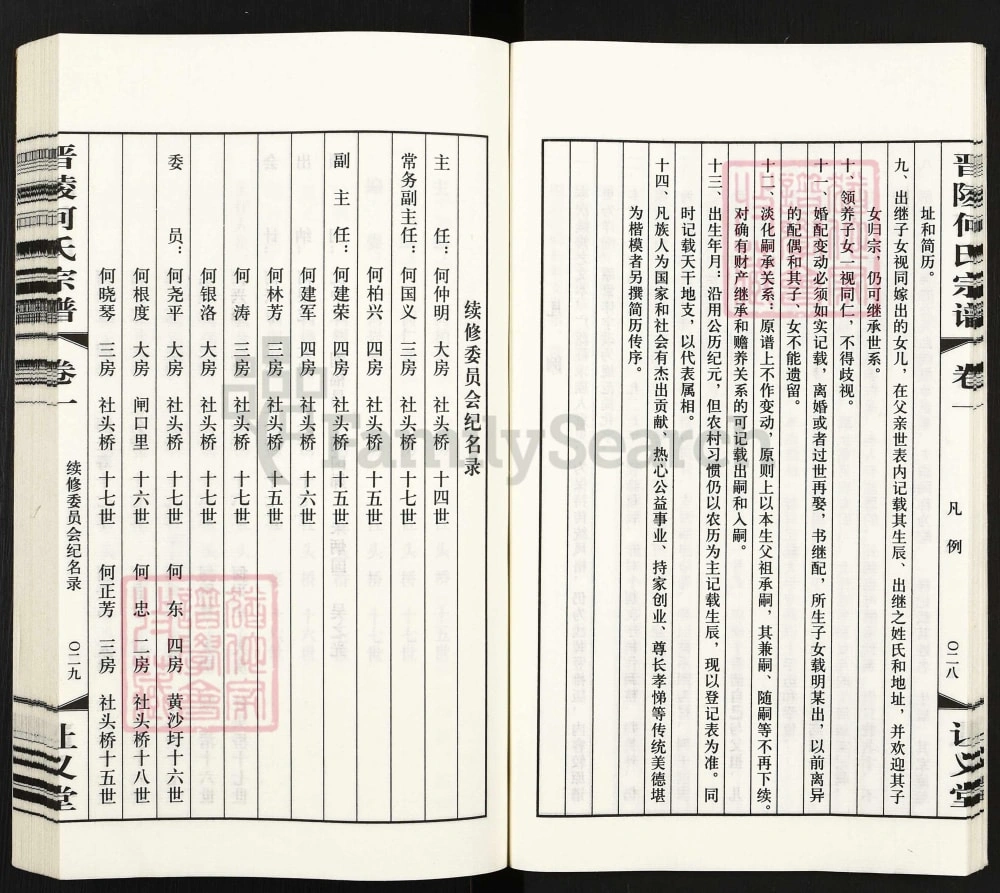 晋陵何氏宗谱 卷一 凡例 〇二八
址和简历。
九、出继子女视同嫁出的女儿，在父亲世表内记载其生辰、出继之姓氏和地址，并欢迎其子
女归宗，仍可继承世系。
十、领养子女一视同仁，不得歧视。
十一、婚配变动必须如实记载，离婚或者过世再娶，书继配，所生子女载明某出，以前离异
的配偶和其子、女不能遗留。
十二、淡化嗣承关系：原谱上不作变动，原则上以本生父祖承嗣，其兼嗣、随嗣等不再下续。
对确有财产继承和赡养关系的可记载出嗣和入嗣。
十三、出生年月：沿用公历纪元，但农村习惯仍以农历为主记载生辰，现以登记表为准。同
时记载天干地支，以代表属相。
十四、凡族人为国家和社会有杰出贡献、热心公益事业、持家创业、尊长孝悌等传统美德堪
为楷模者另撰简历传序。
续修委员会纪名录
主 任：何仲明 大房 社头桥 十四世
常务副主任：何国义 三房 社头桥 十七世
何柏兴 四房 社头桥 十五世
副 主 任：何建荣 四房 社头桥 十五世
何建军 四房 社头桥 十六世
何林芳 三房 社头桥 十五世
何 涛 三房 社头桥 十七世
何银洛 大房 社头桥 十七世
委 员：何尧平 大房 社头桥 十七世 何 东 四房 黄沙圩十六世
何根度 大房 闸口里 十六世 何 忠 二房 社头桥十八世
何晓琴 三房 社头桥 十七世 何正芳 三房 社头桥十五世
晋陵何氏宗谱 卷一 续修委员会纪名录 〇二九
FamilySearch